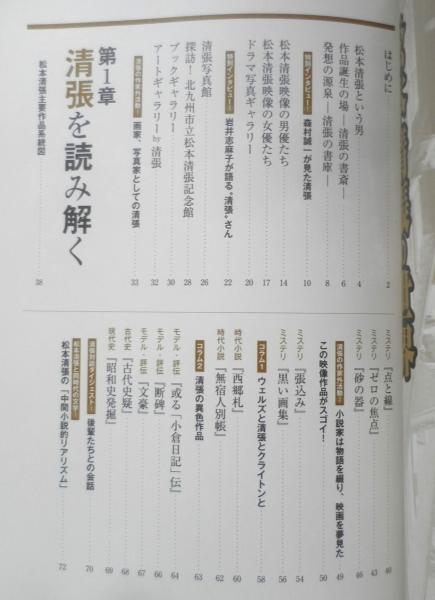 はじめに 2
松本清張という男 4
作品誕生の場―清張の書斎― 6
発想の源泉―清張の書庫― 8
特別インタビュー① 森村誠一が見た清張 10
松本清張映像の男優たち 14
松本清張映像の女優たち 17
ドラマ写真ギャラリー 20
特別インタビュー② 岩井志麻子が語る“清張”さん 22
清張写真館 26
探訪!北九州市立松本清張記念館 28
ブックギャラリー 30
アートギャラリー by 清張 32
清張の作家外活動① 画家、写真家としての清張 33
第1章
清張を読み解く
松本清張主要作品系統図 38
ミステリ 『点と線』 40
ミステリ 『ゼロの焦点』 43
ミステリ 『砂の器』 46
清張の作家外活動② 小説家は物語を綴り、映画を夢見た 49
この映像作品がスゴイ! 50
ミステリ 『張込み』 54
ミステリ 『黒い画集』 56
コラム1 ウェルズと清張とクライトンと 58
時代小説 『西郷札』 60
時代小説 『無宿人別帳』 62
コラム2 清張の異色作品 63
モデル・評伝 『或る「小倉日記」伝』 64
モデル・評伝 『断碑』 66
モデル・評伝 『文豪』 67
古代史 『古代史疑』 68
現代史 『昭和史発掘』 69
清張対談ダイジェスト! 後輩たちとの会話 70
松本清張と同時代の文学! 松本清張の「中間小説的リアリズム」 72